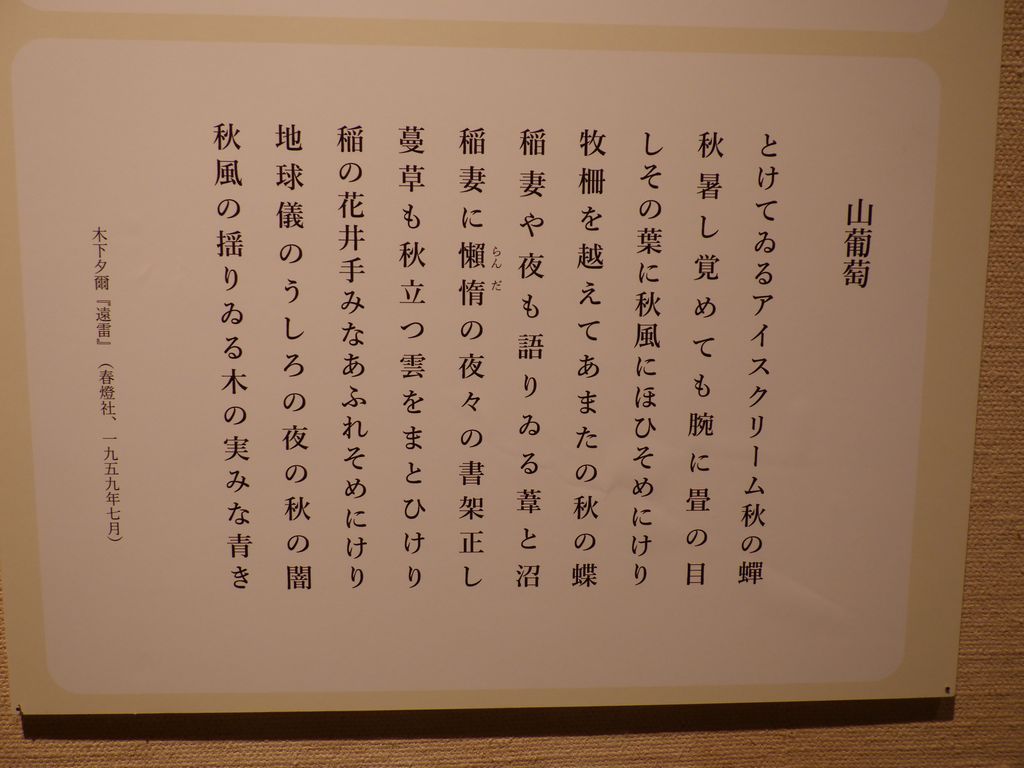 山葡萄
とけてゐるアイスクリーム秋の蟬
秋暑し覚めても腕に畳の目
しその葉に秋風にほひそめにけり
牧柵を越えてあまたの秋の蝶
稲妻や夜も語りゐる葦と沼
稲妻に懶惰の夜々の書架正し
らんだ
蔓草も秋立つ雲をまとひけり
稲の花井手みなあふれそめにけり
地球儀のうしろの夜の秋の闇
秋風の揺りゐる木の実みな青き
木下夕爾『遠雷』（春燈社、一九五九年七月）